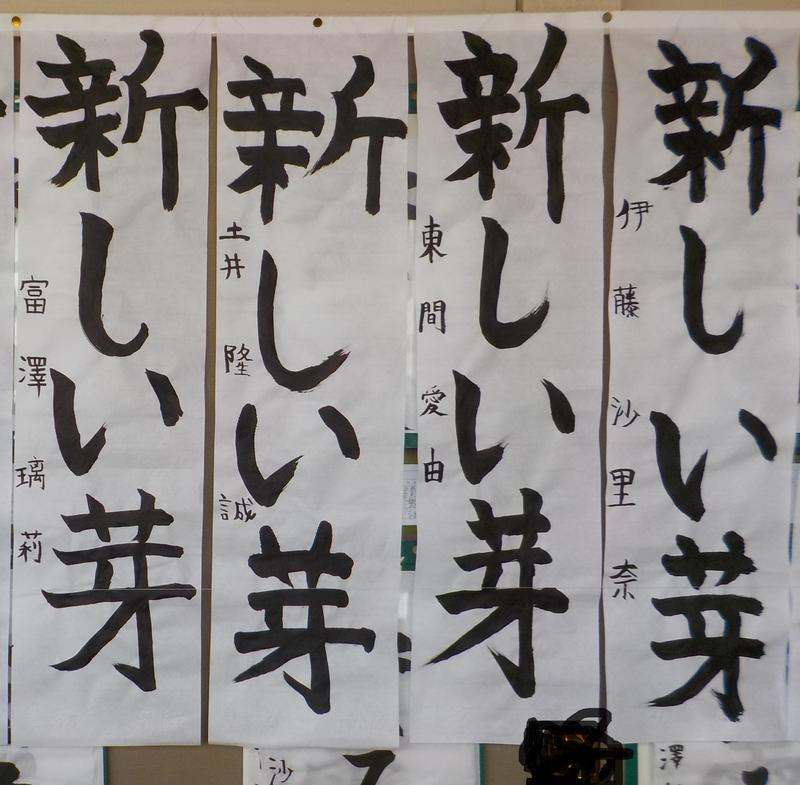 新しい芽
伊藤沙里奈
新しい芽
東間愛由
新しい芽
土井隆誠
新しい芽
富澤璃莉
沙
澤